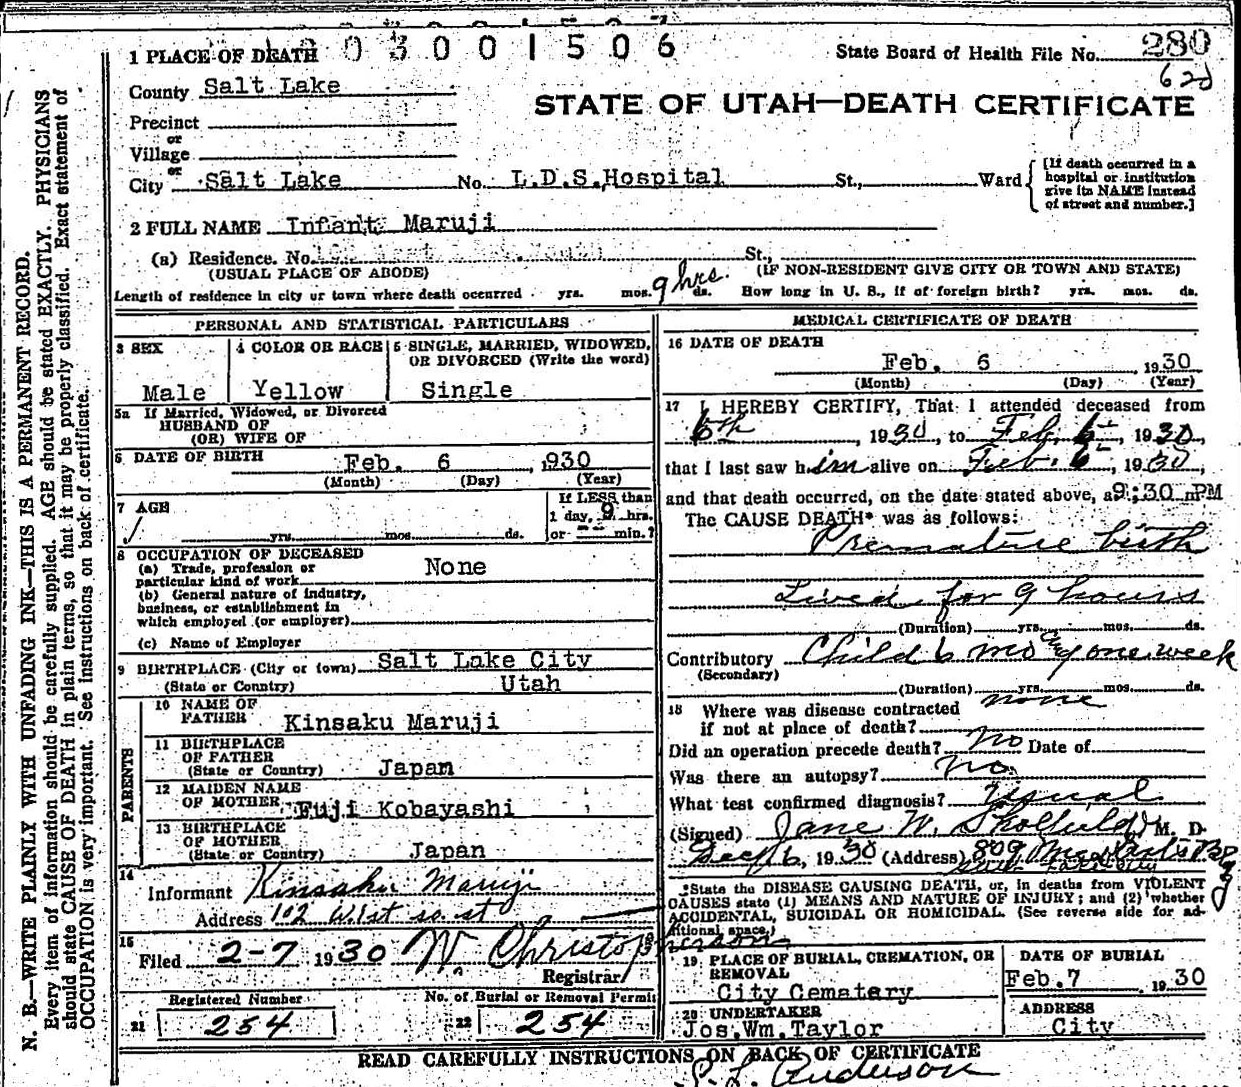 3001506
1 PLACE OF DEATH
State Board of Health File No. 280
62d
County Salt Lake
STATE OF UTAH—DEATH CERTIFICATE
Precinct
or
Village
or
City Salt Lake No. L.D.S.Hospital St., Ward
[If death occurred in a hospital or institution give its NAME instead of street and number.]
2 FULL NAME Infant Maruji
(a) Residence. No. St.,
(USUAL PLACE OF ABODE) (IF NON-RESIDENT GIVE CITY OR TOWN AND STATE)
Length of residence in city or town where death occurred yrs. mos. 9 hrs. ds. How long in U. S., if of foreign birth? yrs. mos. ds.
PERSONAL AND STATISTICAL PARTICULARS
3 SEX
Male
4 COLOR OR RACE
Yellow
5 SINGLE, MARRIED, WIDOWED, OR DIVORCED (Write the word)
Single
5a If Married, Widowed, or Divorced
HUSBAND OF
(OR) WIFE OF
6 DATE OF BIRTH
Feb. 6, 1930
(Month) (Day) (Year)
7 AGE
yrs. mos. ds.
If LESS than
1 day, 9 hrs.
or -- min.?
8 OCCUPATION OF DECEASED
(a) Trade, profession or
particular kind of work None
(b) General nature of industry,
business, or establishment in
which employed (or employer)
(c) Name of Employer
9 BIRTHPLACE (City or town) Salt Lake City
(State or Country) Utah
PARENTS
10 NAME OF
FATHER Kinsaku Maruji
11 BIRTHPLACE
OF FATHER
(State or Country) Japan
12 MAIDEN NAME
OF MOTHER Fuji Kobayashi
13 BIRTHPLACE
OF MOTHER
(State or Country) Japan
14
Informant Kinsaku Maruji
Address 102 West so. st
15
Filed 2-7 1930 W. Christopherson
Registrar
Registered Number
21 254
No. of Burial or Removal Permit
22 254
MEDICAL CERTIFICATE OF DEATH
16 DATE OF DEATH
Feb. 6, 1930
(Month) (Day) (Year)
17 I HEREBY CERTIFY, That I attended deceased from
6th, 1930, to Feb. 6, 1930,
that I last saw him alive on Feb. 6, 1930
and that death occurred, on the date stated above, at 9:30 PM
The CAUSE DEATH* was as follows:
Premature birth
Lived for 9 hours
(Duration) yrs. mos. ds.
Contributory Child 6 mo one week
(Secondary)
(Duration) yrs. mos. ds.
18 Where was disease contracted
if not at place of death? none
Did an operation precede death? No Date of
Was there an autopsy? No.
What test confirmed diagnosis? Visual
(Signed) Jane W. Skolfield M. D.
6, 1930 (Address) 809
*State the DISEASE CAUSING DEATH, or, in deaths from VIOLENT
CAUSES state (1) MEANS AND NATURE OF INJURY; and (2) whether
ACCIDENTAL, SUICIDAL OR HOMICIDAL. (See reverse side for ad-
ditional space.)
19 PLACE OF BURIAL, CREMATION, OR
REMOVAL
City Cematary
DATE OF BURIAL
Feb.7 1930
20 UNDERTAKER
Jos.Wm.Taylor
ADDRESS
City
READ CAREFULLY INSTRUCTIONS ON BACK OF CERTIFICATE
S. L. Anderson
N. B.—WRITE PLAINLY WITH UNFADING INK—THIS IS A PERMANENT RECORD.
Every item of information should be carefully supplied. AGE should be stated EXACTLY. PHYSICIANS
should state CAUSE OF DEATH in plain terms, so that it may be properly classified. Exact statement of
OCCUPATION is very important. See instructions on back of certificate.